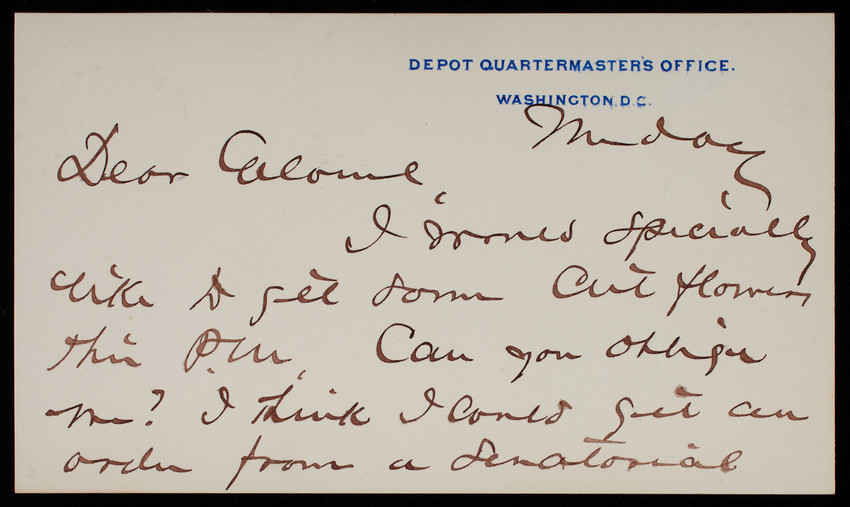 DEPOT QUARTERMASTERS OFFICE.
WASHINGTON, D.C.
Monday
Dear Colonel,
I would specially
like to get some Cut flowers
this P.M. Can you oblige
me? I think I could get an
order from a Senatorial